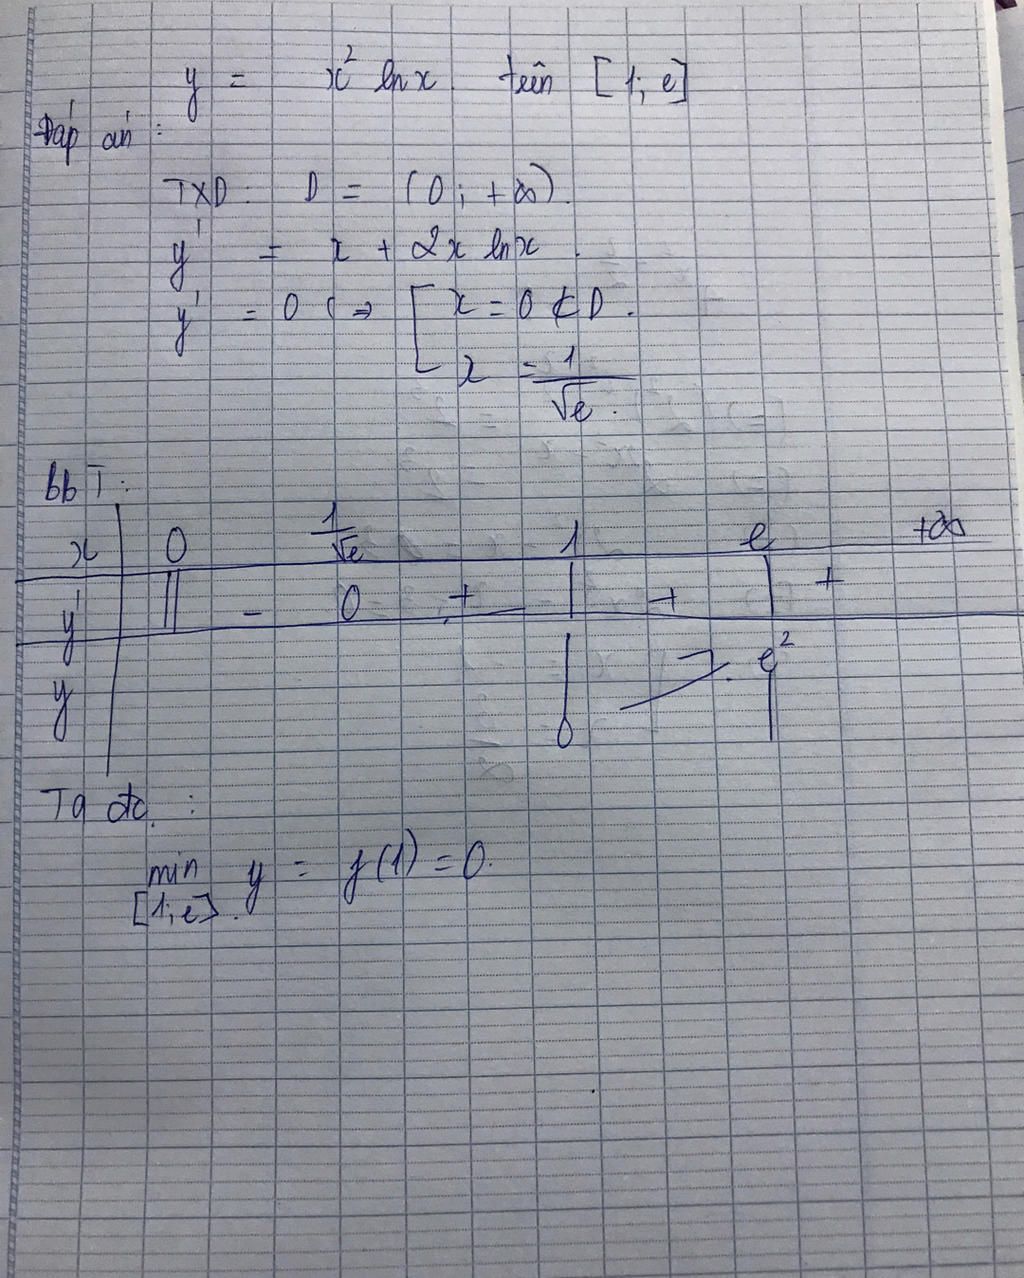 y = x² ln x trên [1; e]
Đáp án :
TXD : D = (0 ; +∞).
y' = x + 2x ln x .
y' = 0 (⇒ [ x = 0 ⊄ D .
x = 1/√e .
bbT :
x 0 1/√e 1 e +∞
y' || - 0 + | + | +
y 0 → e²
Ta đc :
min y = y(1) = 0.
[1; e] .